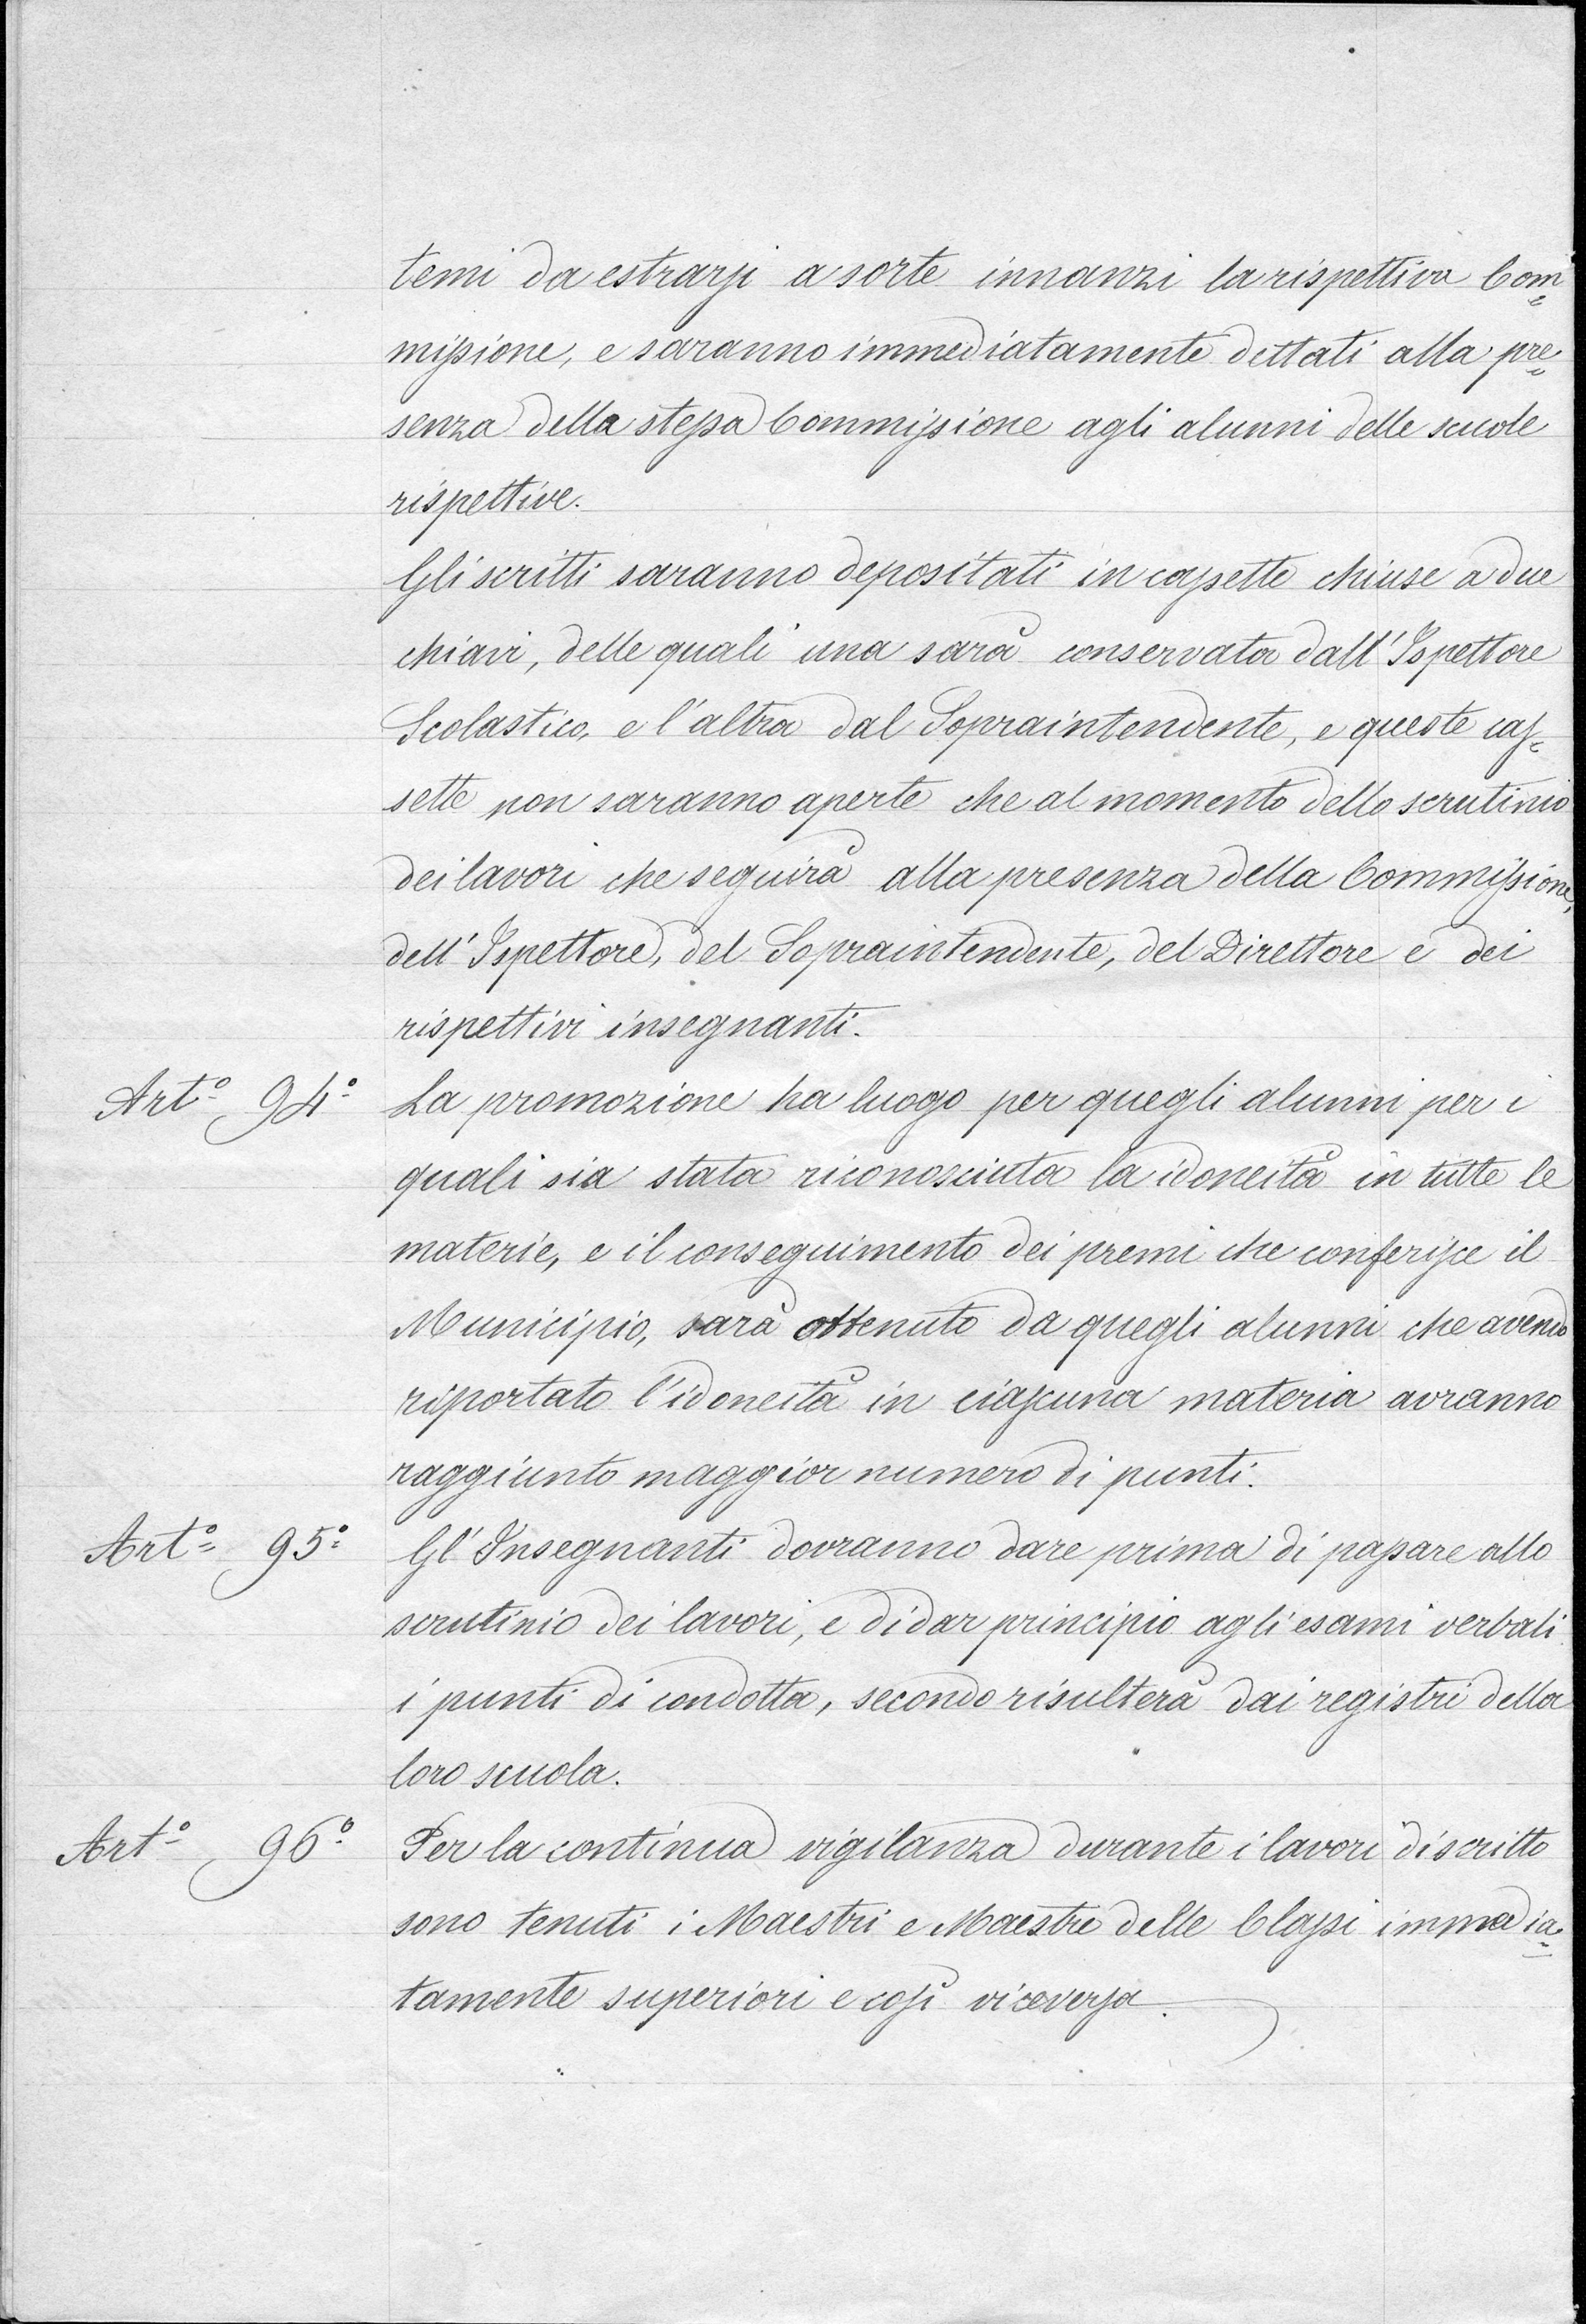 temi da estrarsi a sorte innanzi la rispettiva Com=
missione, e saranno immediatamente dettati alla pre=
senza della stessa Commissione agli alunni delle scuole
rispettive.
Gli scritti saranno depositati in cassette chiuse a due
chiavi, delle quali una sarà conservata dall'Ispettore
Scolastico, e l'altra dal Sopraintendente, e queste cas=
sette non saranno aperte che al momento dello scrutinio
dei lavori che seguirà alla presenza della Commissione,
dell'Ispettore, del Sopraintendente, del Direttore e dei
rispettivi insegnanti.
Artº 94º La promozione ha luogo per quegli alunni per i
quali sia stata riconosciuta la idoneità in tutte le
materie, e il conseguimento dei premi che conferisce il
Municipio, sarà ottenuto da quegli alunni che avendo
riportato l'idoneità in ciascuna materia avranno
raggiunto maggior numero di punti.
Artº 95º Gl'Insegnanti dovranno dare prima di passare allo
scrutinio dei lavori, e di dar principio agli esami verbali
i punti di condotta, secondo risulterà dai registri della
loro scuola.
Artº 96º Per la continua vigilanza durante i lavori di scritto
sono tenuti i Maestri e Maestre delle Classi immedia=
tamente superiori e così viceversa.